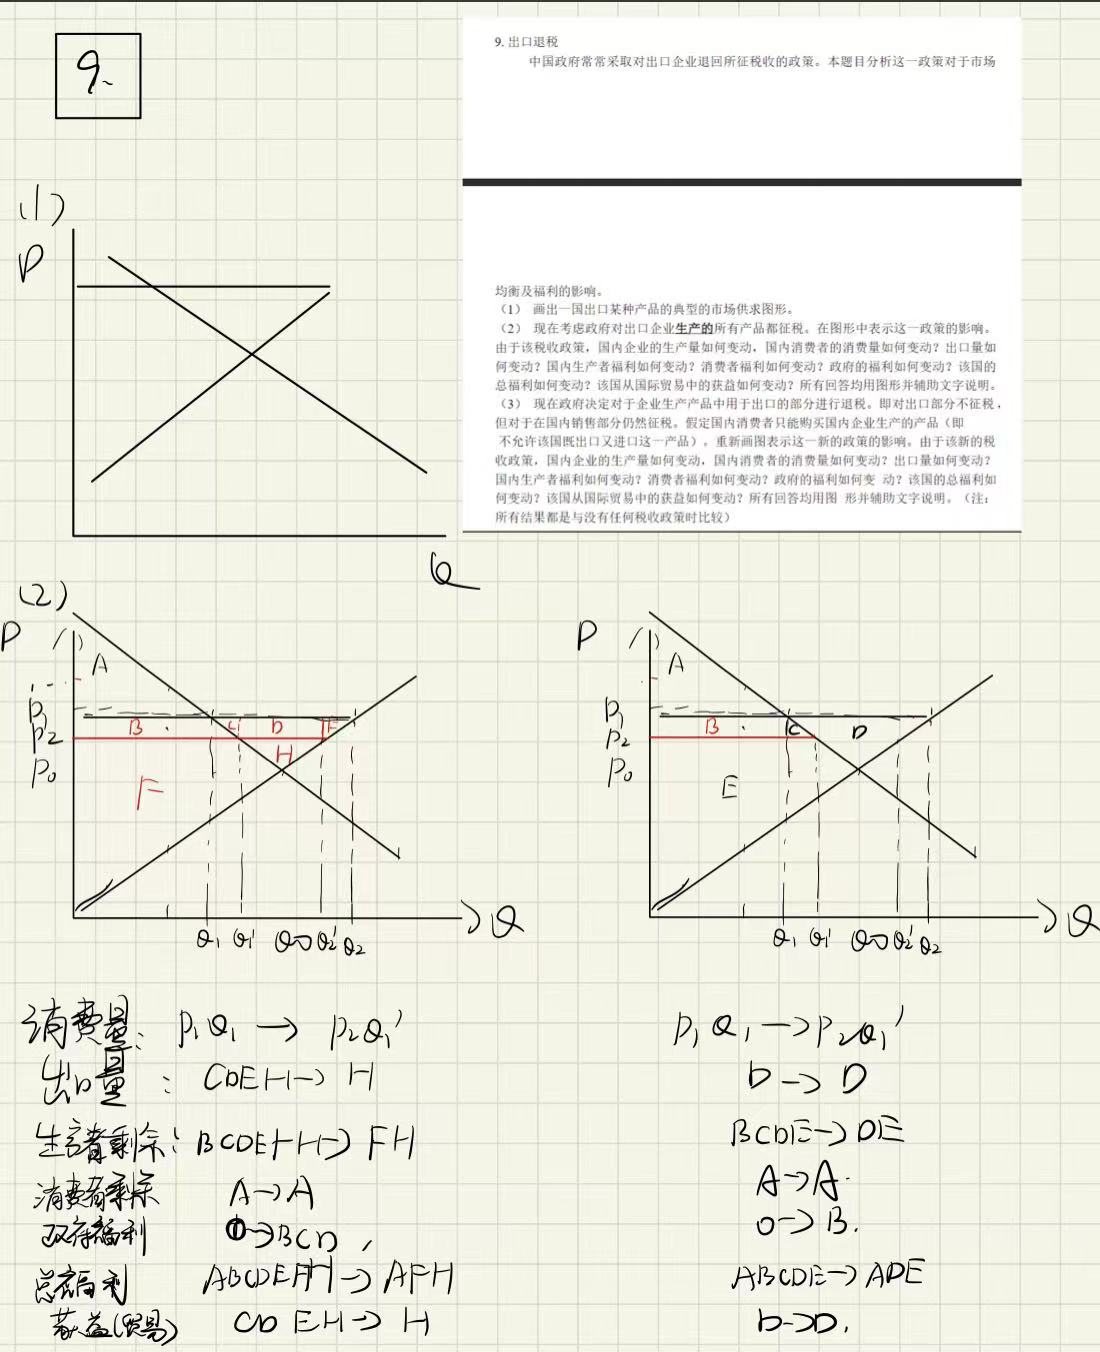 9.
9. 出口退税
中国政府常常采取对出口企业退回所征税收的政策。本题目分析这一政策对于市场
均衡及福利的影响。
（1） 画出一国出口某种产品的典型的市场供求图形。
（2） 现在考虑政府对出口企业生产的所有产品都征税。在图形中表示这一政策的影响。
由于该税收政策，国内企业的生产量如何变动，国内消费者的消费量如何变动？出口量如
何变动？国内生产者福利如何变动？消费者福利如何变动？政府的福利如何变动？该国的
总福利如何变动？该国从国际贸易中的获益如何变动？所有回答均用图形并辅助文字说明。
（3） 现在政府决定对于企业生产产品中用于出口的部分进行退税。即对出口部分不征税，
但对于在国内销售部分仍然征税。假定国内消费者只能购买国内企业生产的产品（即
不允许该国既出口又进口这一产品）。重新画图表示这一新的政策的影响。由于该新的税
收政策，国内企业的生产量如何变动，国内消费者的消费量如何变动？出口量如何变动？
国内生产者福利如何变动？消费者福利如何变动？政府的福利如何变 动？该国的总福利如
何变动？该国从国际贸易中的获益如何变动？所有回答均用图 形并辅助文字说明。（注：
所有结果都是与没有任何税收政策时比较）
(1)
P
Q
(2)
P
A
P1
B C D E
P2
H
P0
F
Q1 Q1' Q0 Q2' Q2
Q
P
A
P1
B C D
P2
P0
E
Q1 Q1' Q0 Q2' Q2
Q
消费量： P1Q1 → P2Q1' P1Q1 → P2Q1'
出口量： CDEH → H D → D
生产者剩余： BCDEFH → FH BCDE → DE
消费者剩余 A → A A → A.
政府福利 0 → BCD 0 → B.
总福利 ABCDEFH → AFH ABCDE → ADE
获益(贸易) CDEH → H D → D.